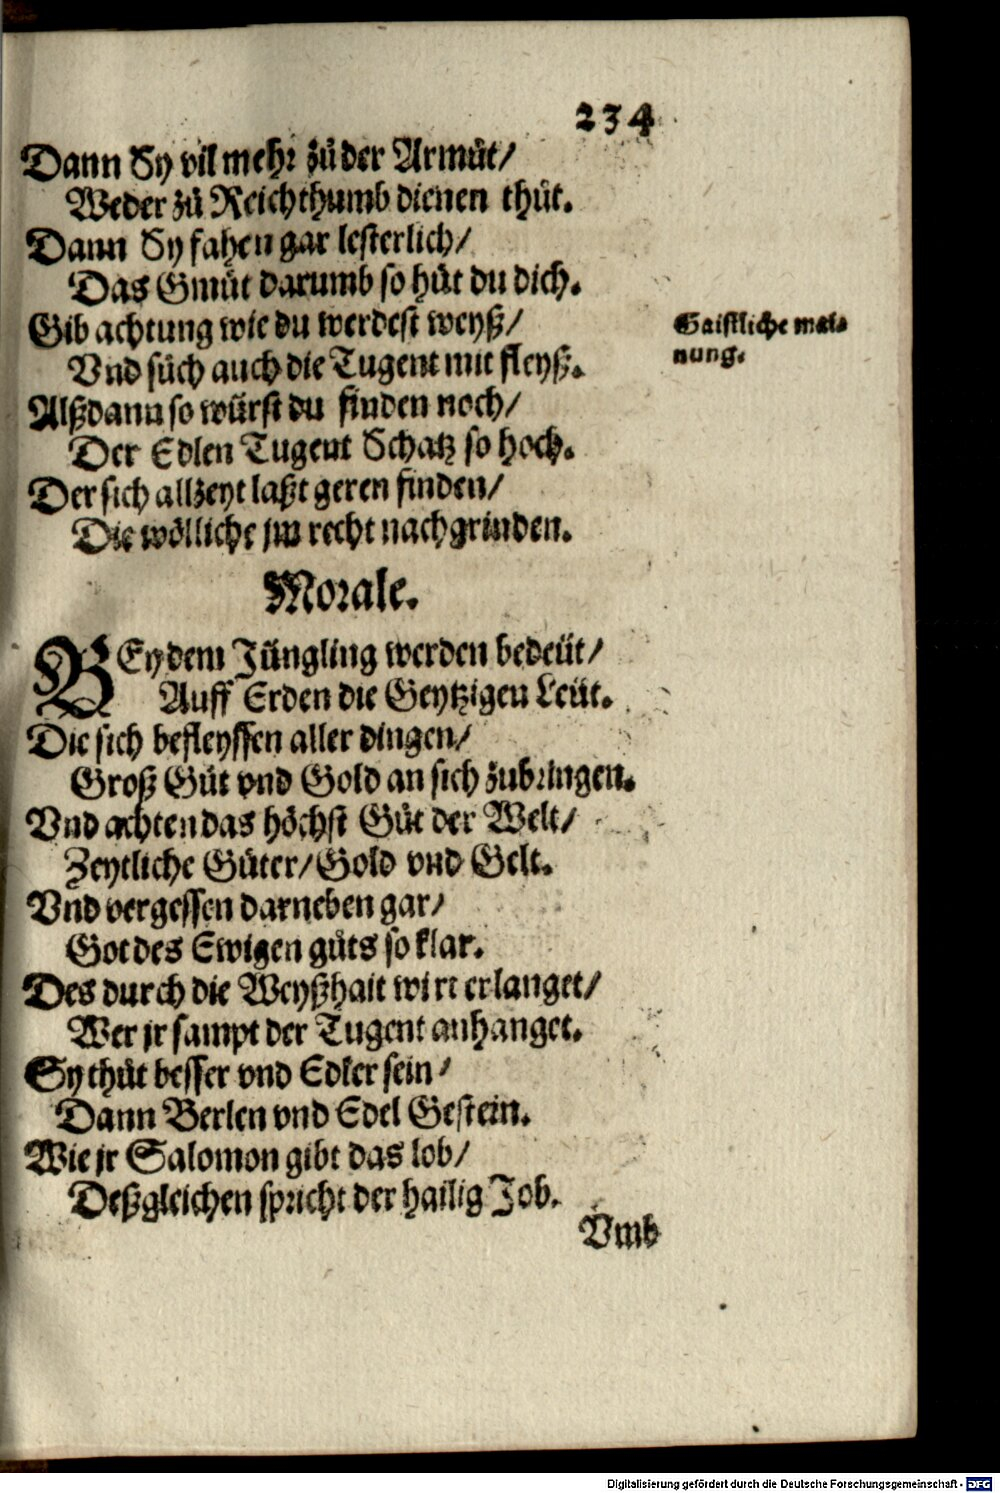 234
Dann Sy vil mehr zů der Armůt/
Weder zů Reichthumb dienen thůt.
Dann Sy fahen gar lesterlich/
Das Gmůt darumb so hůt du dich.
Gib achtung wie du werdest weyß/
Gaistliche mai-
nung.
Vnd sůch auch die Tugent mit fleyß.
Alßdann so würst du finden noch/
Der Edlen Tugent Schatz so hoch.
Der sich allzeyt laßt geren finden/
Die wölliche jm recht nachgrinden.
Morale.
BEy dem Jüngling werden bedeüt/
Auff Erden die Geytzigen Leüt.
Die sich befleyssen aller dingen/
Groß Gůt vnd Gold an sich zubringen.
Vnd achten das höchst Gůt der Welt/
Zeytliche Güter/Gold vnd Gelt.
Vnd vergessen darneben gar/
Got des Ewigen gůts so klar.
Des durch die Weyßhait wirt erlanget/
Wer jr sampt der Tugent anhanget.
Sy thůt besser vnd Edler sein/
Dann Berlen vnd Edel Gestein.
Wie jr Salomon gibt das lob/
Deßgleichen spricht der hailig Job.
Vmb
Digitalisierung gefördert durch die Deutsche Forschungsgemeinschaft - DFG